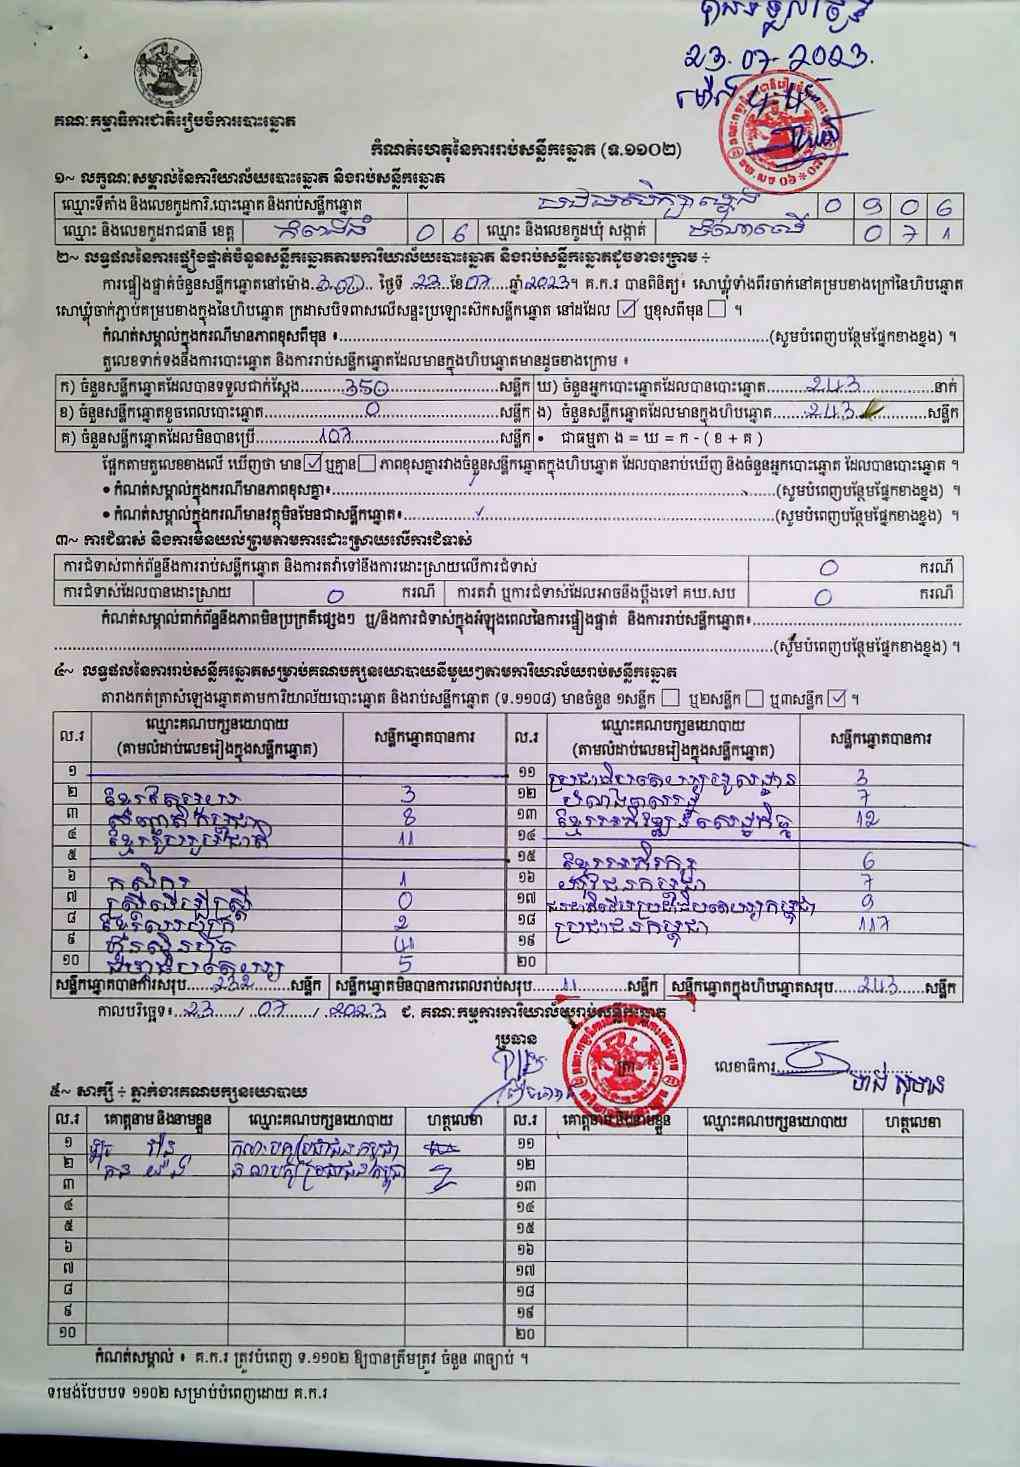 23.07.2023.
គណៈកម្មាធិការជាតិរៀបចំការបោះឆ្នោត
កំណត់ហេតុនៃការរាប់សន្លឹកឆ្នោត (ទ.១១០២)
១~ លក្ខណៈសម្គាល់នៃការិយាល័យបោះឆ្នោត និងរាប់សន្លឹកឆ្នោត
ឈ្មោះទីតាំង និងលេខកូដការិ.បោះឆ្នោត និងរាប់សន្លឹកឆ្នោត 0 9 0 6
ឈ្មោះ និងលេខកូដរាជធានី ខេត្ត កំពង់ធំ 0 6 ឈ្មោះ និងលេខកូដឃុំ សង្កាត់ 0 7 1
២~ លទ្ធផលនៃការផ្ទៀងផ្ទាត់ចំនួនសន្លឹកឆ្នោតតាមការិយាល័យបោះឆ្នោត និងរាប់សន្លឹកឆ្នោតដូចខាងក្រោម ÷
ការផ្ទៀងផ្ទាត់ចំនួនសន្លឹកឆ្នោតនៅម៉ោង 3:00 ថ្ងៃទី 23 ខែ 07 ឆ្នាំ 2023។ គ.ក.រ បានពិនិត្យ៖ សោឃ្លុំទាំងពីរចាក់នៅគម្របខាងក្រៅនៃហិបឆ្នោត
សោឃ្លុំចាក់ភ្ជាប់គម្របខាងក្នុងនៃហិបឆ្នោត ក្រដាសបិទពាសលើសន្ទះប្រឡោះស៊កសន្លឹកឆ្នោត នៅដដែល ☑ ឬខុសពីមុន ☐ ។
កំណត់សម្គាល់ក្នុងករណីមានភាពខុសពីមុន ៖ (សូមបំពេញបន្ថែមផ្នែកខាងខ្នង) ។
តួលេខទាក់ទងនឹងការបោះឆ្នោត និងការរាប់សន្លឹកឆ្នោតដែលមានក្នុងហិបឆ្នោតមានដូចខាងក្រោម ៖
ក) ចំនួនសន្លឹកឆ្នោតដែលបានទទួលជាក់ស្តែង 350 សន្លឹក ឃ) ចំនួនអ្នកបោះឆ្នោតដែលបានបោះឆ្នោត 243 នាក់
ខ) ចំនួនសន្លឹកឆ្នោតខូចពេលបោះឆ្នោត 0 សន្លឹក ង) ចំនួនសន្លឹកឆ្នោតដែលមានក្នុងហិបឆ្នោត 243 សន្លឹក
គ) ចំនួនសន្លឹកឆ្នោតដែលមិនបានប្រើ 107 សន្លឹក • ជាធម្មតា ង = ឃ = ក - ( ខ + គ )
ផ្អែកតាមតួលេខខាងលើ ឃើញថា មាន ☑ ឬគ្មាន ☐ ភាពខុសគ្នារវាងចំនួនសន្លឹកឆ្នោតក្នុងហិបឆ្នោត ដែលបានរាប់ឃើញ និងចំនួនអ្នកបោះឆ្នោត ដែលបានបោះឆ្នោត ។
• កំណត់សម្គាល់ក្នុងករណីមានភាពខុសគ្នា៖ (សូមបំពេញបន្ថែមផ្នែកខាងខ្នង) ។
• កំណត់សម្គាល់ក្នុងករណីមានវត្ថុមិនមែនជាសន្លឹកឆ្នោត៖ (សូមបំពេញបន្ថែមផ្នែកខាងខ្នង) ។
៣~ ការជំទាស់ និងការមិនយល់ព្រមតាមការដោះស្រាយលើការជំទាស់
ការជំទាស់ពាក់ព័ន្ធនឹងការរាប់សន្លឹកឆ្នោត និងការតវ៉ាទៅនឹងការដោះស្រាយលើការជំទាស់ 0 ករណី
ការជំទាស់ដែលបានដោះស្រាយ 0 ករណី ការតវ៉ា ឬការជំទាស់ដែលអាចនឹងប្តឹងទៅ គឃ.សប 0 ករណី
កំណត់សម្គាល់ពាក់ព័ន្ធនឹងភាពមិនប្រក្រតីផ្សេងៗ ឬ/និងការជំទាស់ក្នុងអំឡុងពេលនៃការផ្ទៀងផ្ទាត់ និងការរាប់សន្លឹកឆ្នោត៖
(សូមបំពេញបន្ថែមផ្នែកខាងខ្នង) ។
៤~ លទ្ធផលនៃការរាប់សន្លឹកឆ្នោតសម្រាប់គណបក្សនយោបាយនីមួយៗតាមការិយាល័យរាប់សន្លឹកឆ្នោត
តារាងកត់ត្រាសំឡេងឆ្នោតតាមការិយាល័យបោះឆ្នោត និងរាប់សន្លឹកឆ្នោត (ទ.១១០៨) មានចំនួន ១សន្លឹក ☐ ឬ២សន្លឹក ☐ ឬ៣សន្លឹក ☑ ។
ល.រ ឈ្មោះគណបក្សនយោបាយ (តាមលំដាប់លេខរៀងក្នុងសន្លឹកឆ្នោត) សន្លឹកឆ្នោតបានការ ល.រ ឈ្មោះគណបក្សនយោបាយ (តាមលំដាប់លេខរៀងក្នុងសន្លឹកឆ្នោត) សន្លឹកឆ្នោតបានការ
១ ១១ ប្រជាធិបតេយ្យមូលដ្ឋាន 3
២ ខ្មែរតែមួយ 3 ១២ 7
៣ សញ្ជាតិកម្ពុជា 8 ១៣ ខ្មែរអភិវឌ្ឍន៍សេដ្ឋកិច្ច 12
៤ ខ្មែររួបរួមជាតិ 11 ១៤
៥ ១៥ ខ្មែរអភិរក្ស 6
៦ កសិករ 1 ១៦ យុវជនកម្ពុជា 7
៧ ស្ត្រីដើម្បីស្ត្រី 0 ១៧ ជនជាតិដើមប្រជាធិបតេយ្យកម្ពុជា 9
៨ ខ្មែរឈប់ក្រ 2 ១៨ ប្រជាជនកម្ពុជា 117
៩ ហ៊្វុនស៊ិនប៉ិច 41 ១៩
១០ ជំហានិបតេយ្យ 5 ២០
សន្លឹកឆ្នោតបានការសរុប 232 សន្លឹក សន្លឹកឆ្នោតមិនបានការពេលរាប់សរុប 11 សន្លឹក សន្លឹកឆ្នោតក្នុងហិបឆ្នោតសរុប 243 សន្លឹក
កាលបរិច្ឆេទ៖ 23 / 07 / 2023 ជ. គណៈកម្មការការិយាល័យរាប់សន្លឹកឆ្នោត
ប្រធាន
លេខាធិការ
៥~ សាក្សី ÷ ភ្នាក់ងារគណបក្សនយោបាយ
ល.រ គោត្តនាម និងនាមខ្លួន ឈ្មោះគណបក្សនយោបាយ ហត្ថលេខា ល.រ គោត្តនាម និងនាមខ្លួន ឈ្មោះគណបក្សនយោបាយ ហត្ថលេខា
១ គណបក្សប្រជាជនកម្ពុជា ១១
២ គណបក្សប្រជាជនកម្ពុជា ១២
៣ ១៣
៤ ១៤
៥ ១៥
៦ ១៦
៧ ១៧
៨ ១៨
៩ ១៩
១០ ២០
កំណត់សម្គាល់ ៖ គ.ក.រ ត្រូវបំពេញ ទ.១១០២ ឱ្យបានត្រឹមត្រូវ ចំនួន ៣ច្បាប់ ។
ទម្រង់បែបបទ ១១០២ សម្រាប់បំពេញដោយ គ.ក.រ